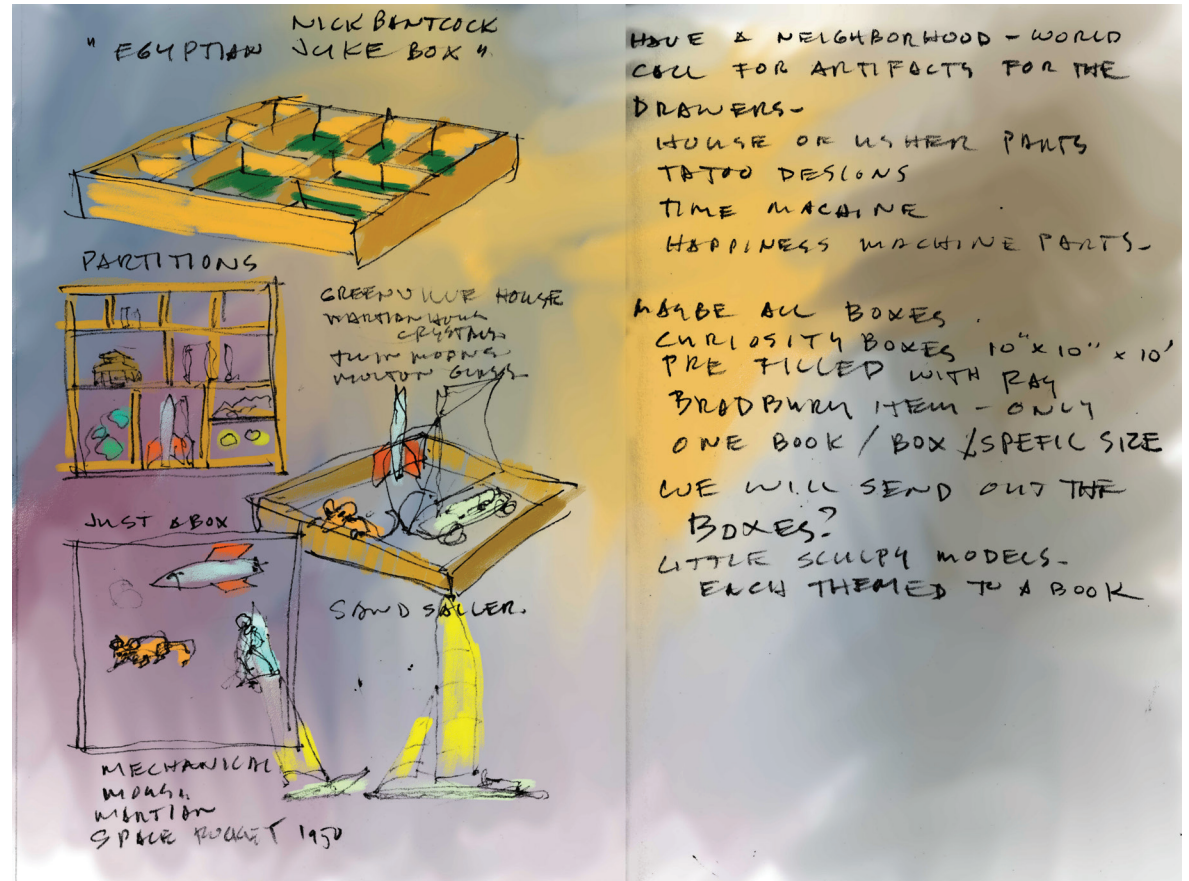 NICK BANTCOCK
"EGYPTIAN JUKE BOX"
PARTITIONS
GREENVILLE HOUSE
MARTIAN HOUSE
CRYSTALS
TWIN MOONS
MOLTON GLASS
JUST A BOX
SAND SAILER.
MECHANICAL
MOUSE
MARTIAN
SPACE ROCKET 1950
HAVE A NEIGHBORHOOD - WORLD
CALL FOR ARTIFACTS FOR THE
DRAWERS-
HOUSE OF USHER PARTS
TATOO DESIGNS
TIME MACHINE
HAPPINESS MACHINE PARTS-
MAYBE ALL BOXES.
CURIOSITY BOXES 10" x 10" x 10'
PRE FILLED WITH RAY
BRADBURY ITEM - ONLY
ONE BOOK / BOX / SPEFIC SIZE
WE WILL SEND OUT THE
BOXES?
LITTLE SCULPY MODELS-
EACH THEMED TO A BOOK